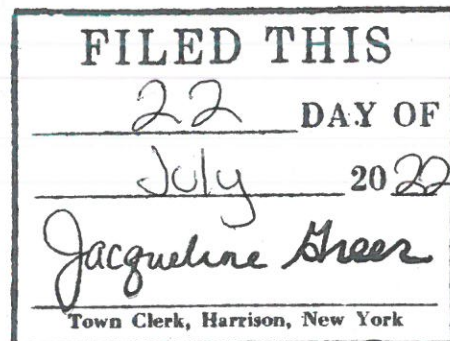 FILED THIS
22 DAY OF
July 2022
Jacqueline Greer
Town Clerk, Harrison, New York